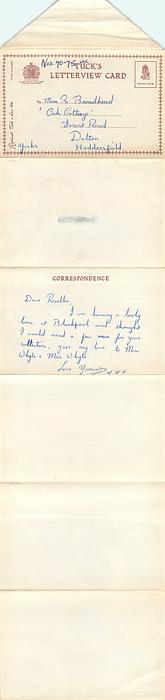 Nos. 70-75 inc.
TUCK'S
LETTERVIEW CARD
To Miss R. Broadhead
'Oak Cottage'
Forest Road
Dalton
Huddersfield
Yorks
CORRESPONDENCE
Dear Rosella,
I am having a lovely
time at Blackpool and thought
I would send a few more for your
collection. give my love to Miss
Whyle & Mrs Whyle.
Love Yvonne xxx